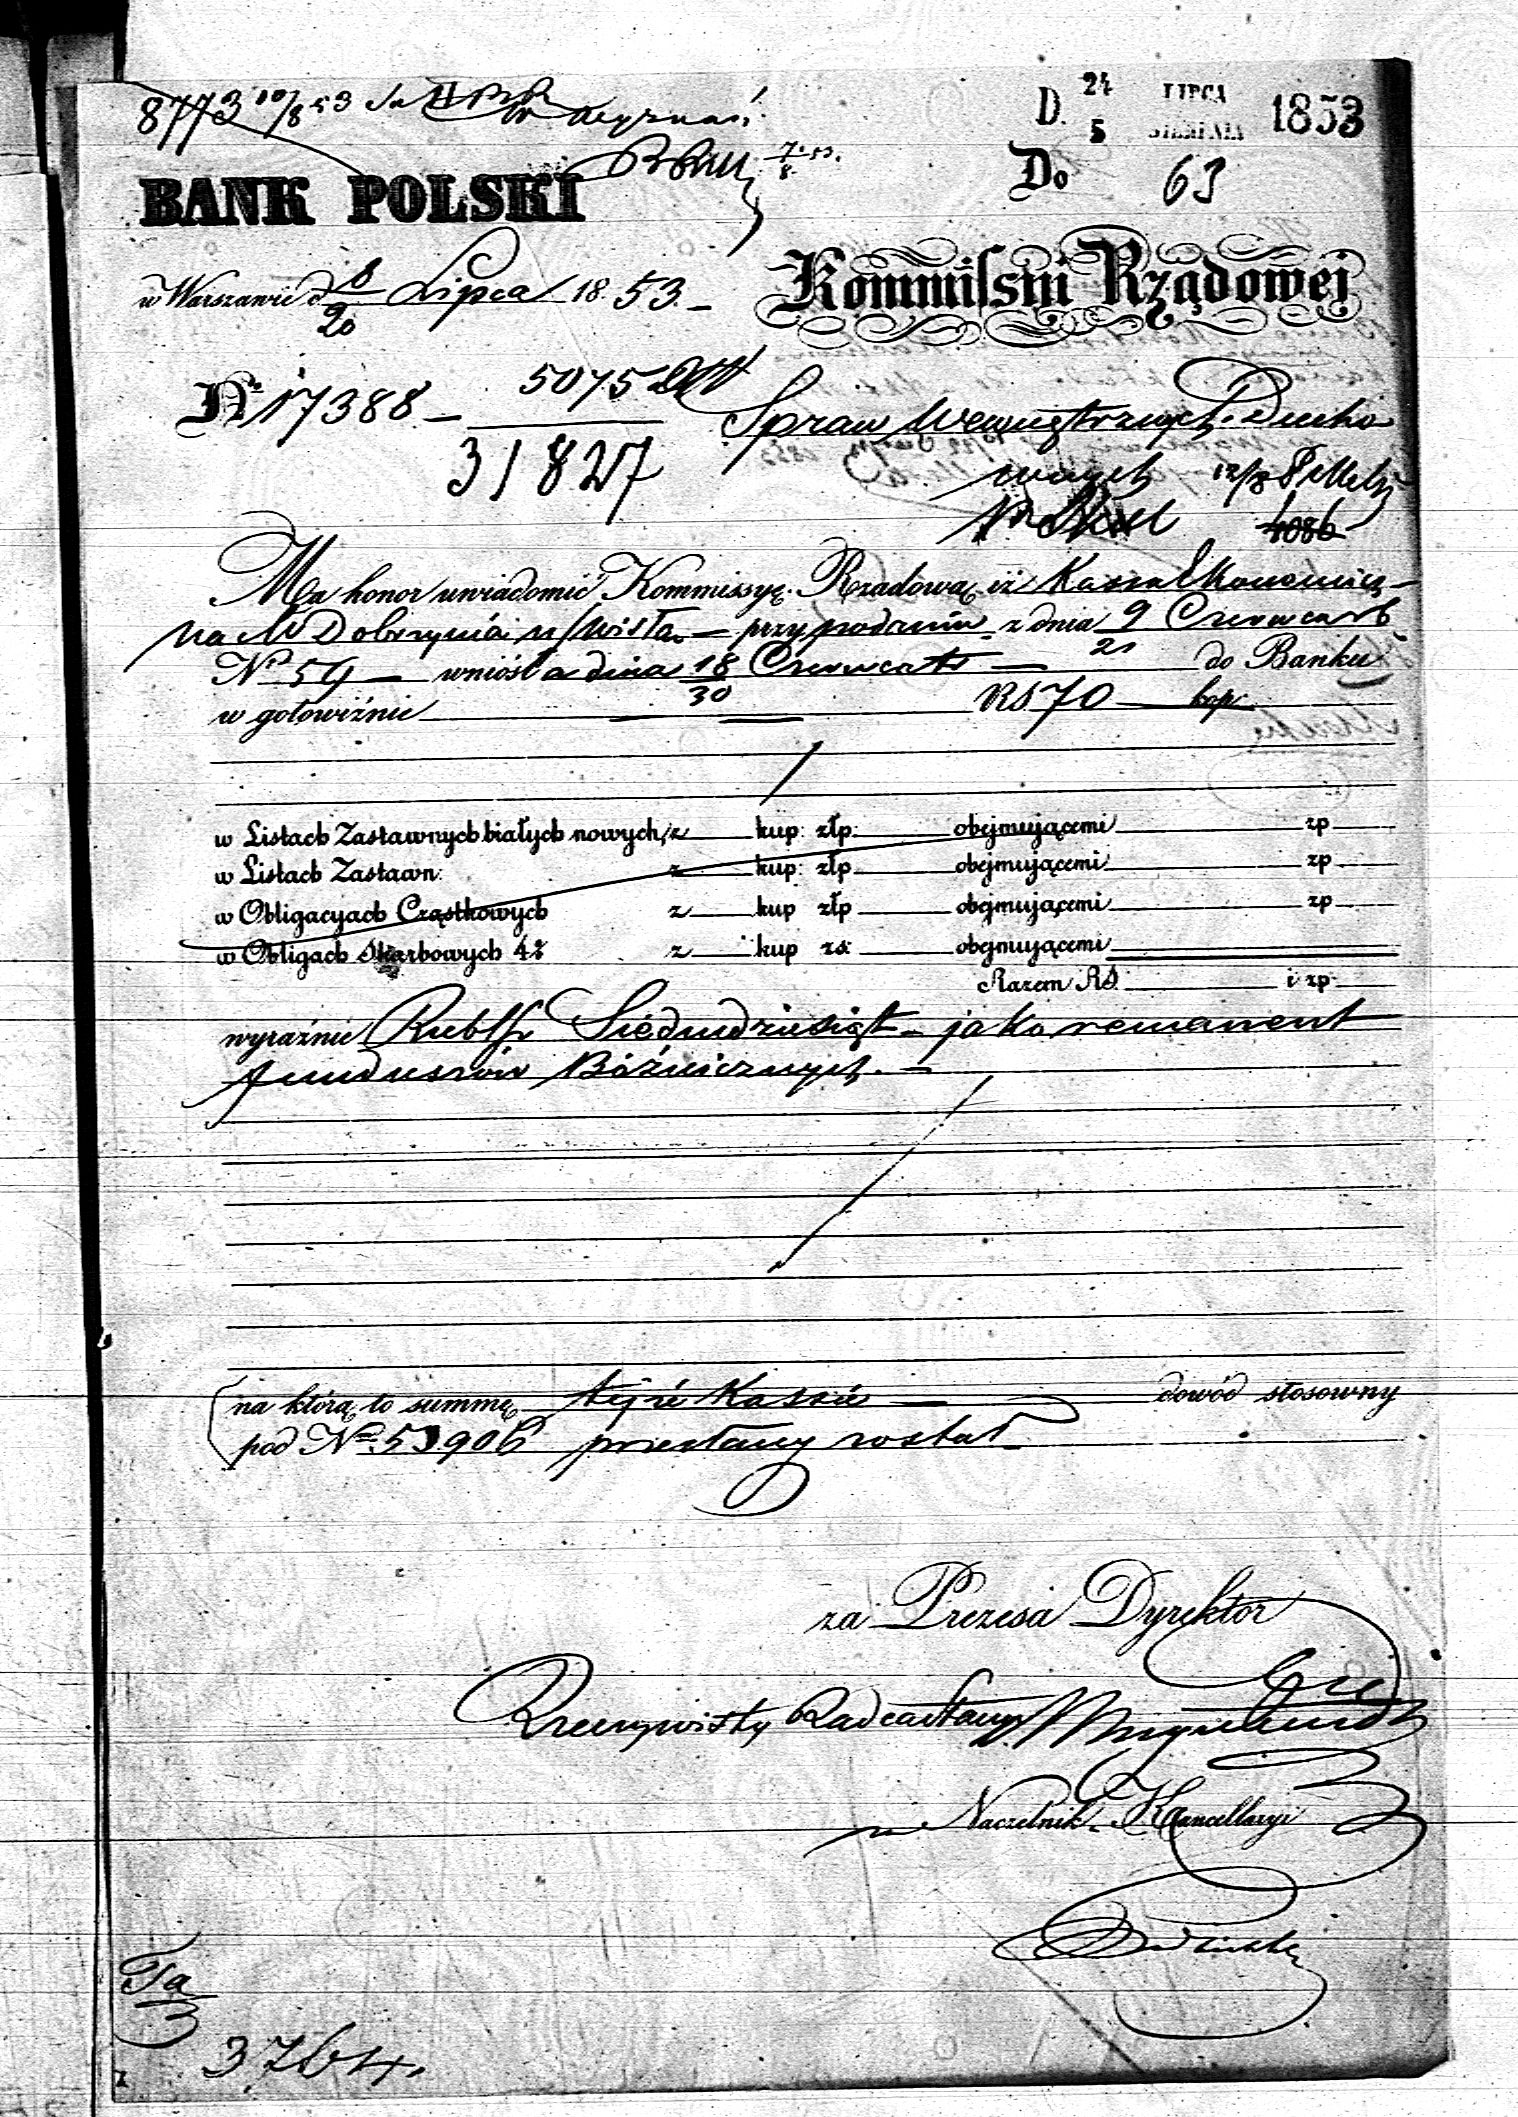 8773 10/8 53
D. 24 LIPCA 1853
5 SIERPNIA
Do 63
BANK POLSKI
w Warszawie d 8/20 Lipca 1853. -
Kommissyi Rządowej
No 17388 - 5075
31827
Spraw Wewnętrznych i Ducho
wnych
4086
Ma honor uwiadomić Kommissyę Rządową, iż Kassa Ekonomicz-
na M Dobrzynia n/Wisłą - przy podaniu z dnia 9/21 Czerwca rb
No 59 - wniosła dnia 18/30 Czerwca tr - do Banku
w gotowiźnie RS 70 kop:
w Listach Zastawnych białych nowych, z kup: złp: obejmującemi zp
w Listach Zastawn: z kup: złp obejmującemi zp
w Obligacyach Cząstkowych z kup złp obejmującemi zp
w Obligach Skarbowych 4% z kup rs: obejmującemi
Razem RS. i zp:
wyraźnie Rubli sr Siedmdziesiąt - jako remanent
funduszów Bóźniczych. -
na którą to summę tejże Kassie - dowód stosowny
pod No 53906 przesłany został
za Prezesa Dyrektor
Rzeczywisty Radca Stanu
Naczelnik Kancellaryi
3764.